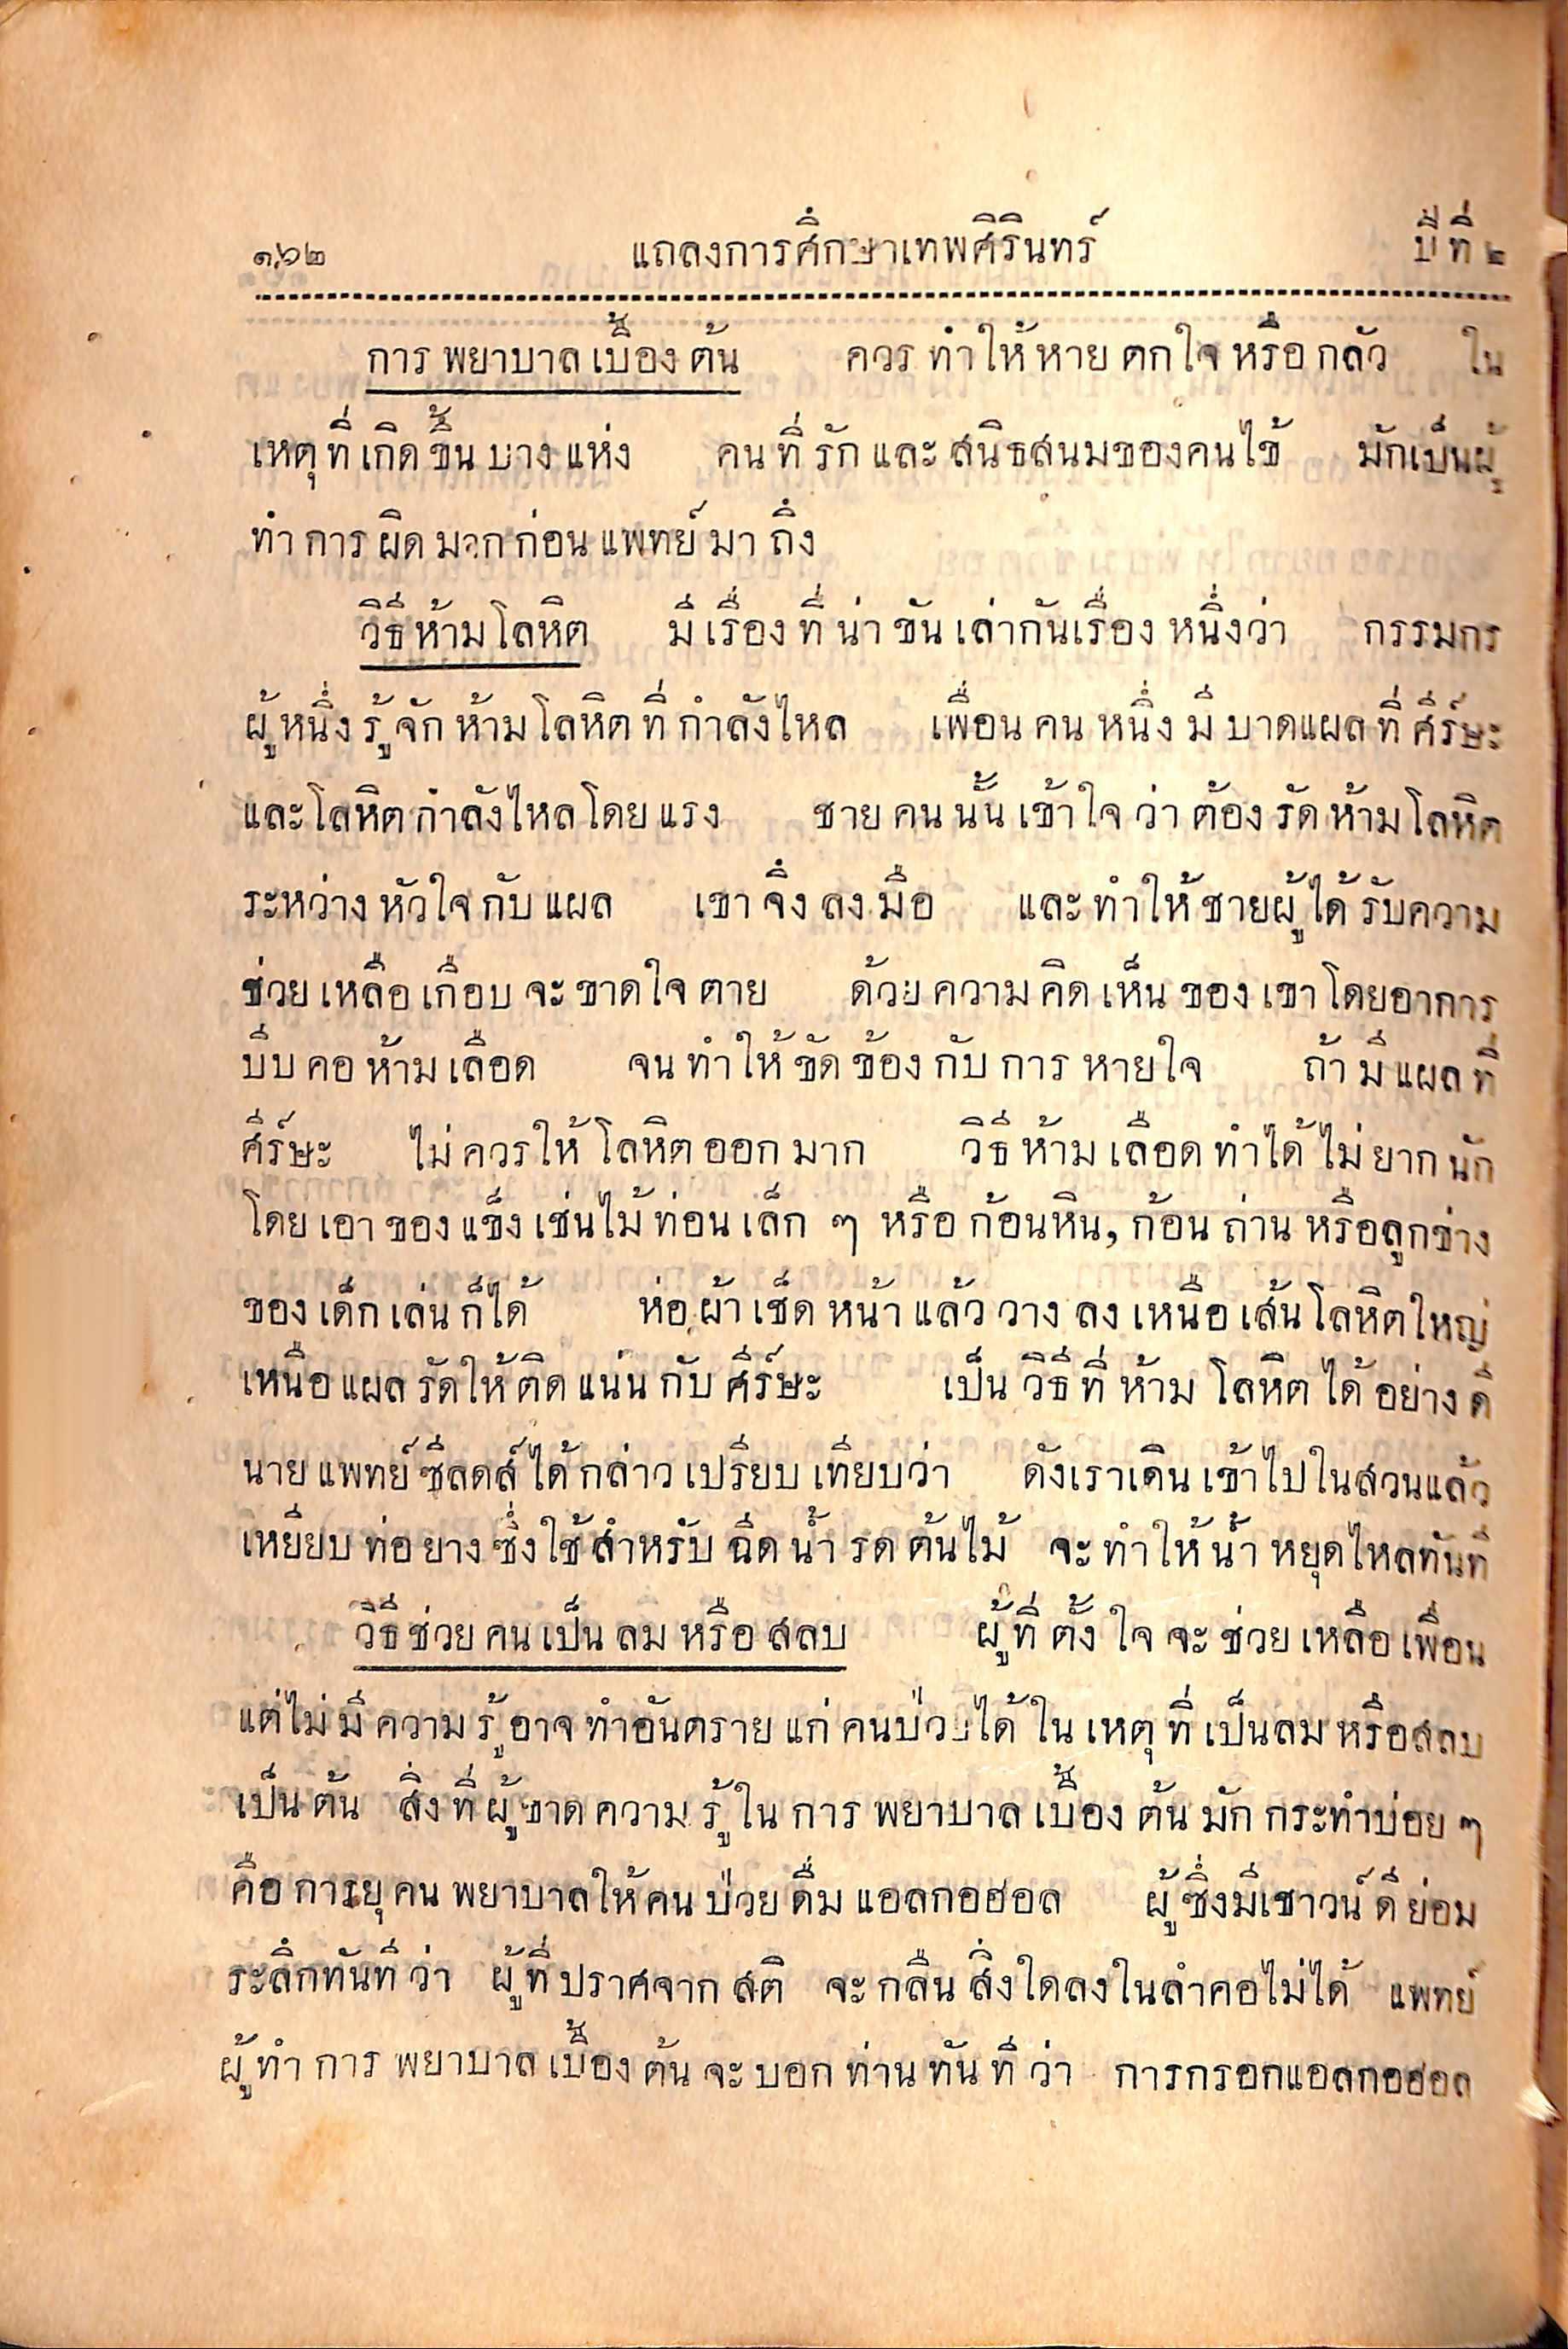 ๑๖๒ แถลงการศึกษาเทพศิรินทร์ ปีที่ ๒
การพยาบาลเบื้องต้น ควรทำให้หายตกใจหรือกลัว ใน
เหตุที่เกิดขึ้นบางแห่ง คนที่รักและสนิธสนมของคนไข้ มักเป็นผู้
ทำการผิดมากก่อนแพทย์มาถึง
วิธีห้ามโลหิต มีเรื่องที่น่าขันเล่ากันเรื่องหนึ่งว่า กรรมกร
ผู้หนึ่งรู้จักห้ามโลหิตที่กำลังไหล เพื่อนคนหนึ่งมีบาดแผลที่ศีร์ษะ
และโลหิตกำลังไหลโดยแรง ชายคนนั้นเข้าใจว่าต้องรัดห้ามโลหิต
ระหว่างหัวใจกับแผล เขาจึงลงมือ และทำให้ชายผู้ได้รับความ
ช่วยเหลือเกือบจะขาดใจตาย ด้วยความคิดเห็นของเขาโดยอาการ
บีบคอห้ามเลือด จนทำให้ขัดข้องกับการหายใจ ถ้ามีแผลที่
ศีร์ษะ ไม่ควรให้โลหิตออกมาก วิธีห้ามเลือดทำได้ไม่ยากนัก
โดยเอาของแข็งเช่นไม้ท่อนเล็ก ๆ หรือก้อนหิน, ก้อนถ่านหรือลูกข่าง
ของเด็กเล่นก็ได้ ห่อผ้าเช็ดหน้าแล้ววางลงเหนือเส้นโลหิตใหญ่
เหนือแผลรัดให้ติดแน่นกับศีร์ษะ เป็นวิธีที่ห้ามโลหิตได้อย่างดี
นายแพทย์ซีลดส์ได้กล่าวเปรียบเทียบว่า ดังเราเดินเข้าไปในสวนแล้ว
เหยียบท่อยางซึ่งใช้สำหรับฉีดน้ำรดต้นไม้ จะทำให้น้ำหยุดไหลทันที
วิธีช่วยคนเป็นลมหรือสลบ ผู้ที่ตั้งใจจะช่วยเหลือเพื่อน
แต่ไม่มีความรู้อาจทำอันตรายแก่คนป่วยได้ในเหตุที่เป็นลมหรือสลบ
เป็นต้น สิ่งที่ผู้ขาดความรู้ในการพยาบาลเบื้องต้นมักกระทำบ่อย ๆ
คือการยุคนพยาบาลให้คนป่วยดื่มแอลกอฮอล ผู้ซึ่งมีเชาวน์ดีย่อม
ระลึกทันทีว่า ผู้ที่ปราศจากสติ จะกลืนสิ่งใดลงในลำคอไม่ได้ แพทย์
ผู้ทำการพยาบาลเบื้องต้นจะบอกท่านทันทีว่า การกรอกแอลกอฮอล